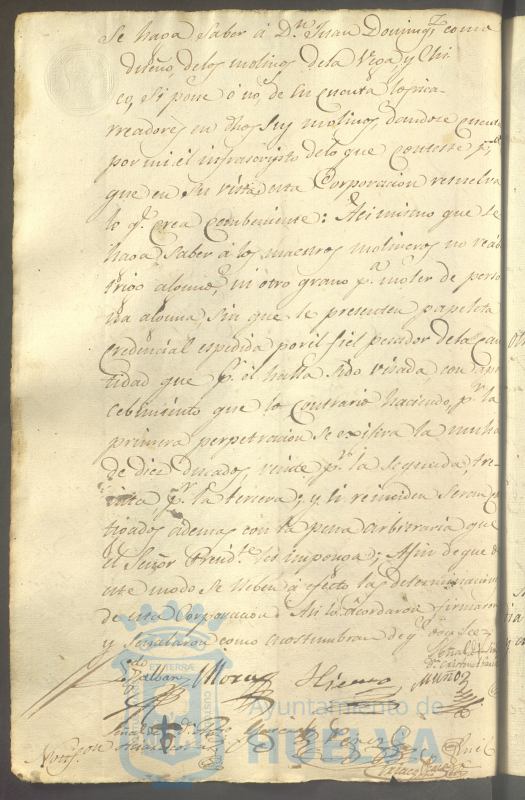 Se haga saber á Dn. Juan Doming.z como
dueño, de los molinos de la Vega, y Chi-
co, si pone ó no, de su cuenta los aca-
rreadores en dhos sus molinos, dandoce cuenta
por mi el infrascripto de lo que conteste p.a
que en su vista esta Corporacion resuelva
lo q.e crea combeniente: Asi mismo que se
haga saber á los maestros molineros no
trigo alguno, ni otro grano p.a moler de perso-
na alguna, sin que le presenten papeleta
credencial espedida por il fiel pesador de la can-
tidad que p.r el halla sido visada con aper-
cebimiento que lo contrario haciendo, p.r la
primera perpetracion se exijira la multa
de diez ducados, veinte p.r la segunda, tre-
inta p.r la tercera; y si reinciden seran cas-
tigados ademas con la pena arbitraria que
el Señor Presid.te les imponga; Afin de que de
este modo se lleben á efecto las determinaciones
de esta Corporacion. Asi lo acordaron firmaron
y señalaron como acostumbran de q.e doy fee
Señal de
Albar Mora Hierro Muñoz
Señal de
Ayuntamiento de
HUELVA